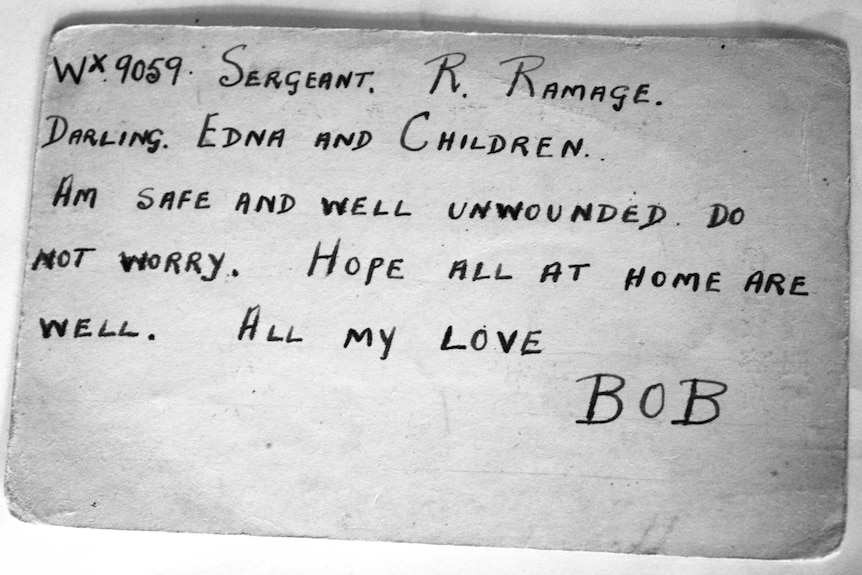 WX.9059. SERGEANT. R. RAMAGE.
DARLING. EDNA AND CHILDREN..
AM SAFE AND WELL UNWOUNDED. DO
NOT WORRY. HOPE ALL AT HOME ARE
WELL. ALL MY LOVE
BOB